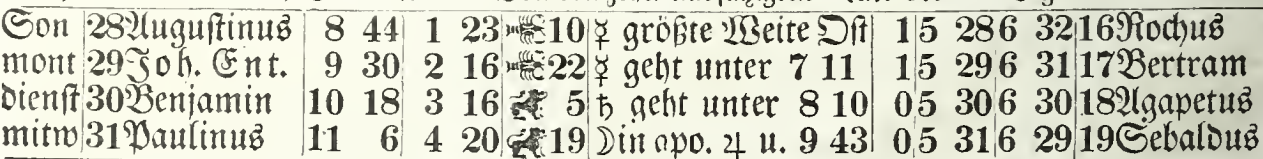 Son 28 Augustinus 8 44 1 23 ♋ 10 ☿ größte Weite Ost 1 5 28 6 32 16 Rochus
mont 29 Joh. Ent. 9 30 2 16 ♋ 22 ☿ geht unter 7 11 1 5 29 6 31 17 Bertram
dienst 30 Benjamin 10 18 3 16 ♌ 5 ♄ geht unter 8 10 0 5 30 6 30 18 Agapetus
mitw 31 Paulinus 11 6 4 20 ♌ 19 ☽ in opo. ♃ u. 9 43 0 5 31 6 29 19 Sebaldus